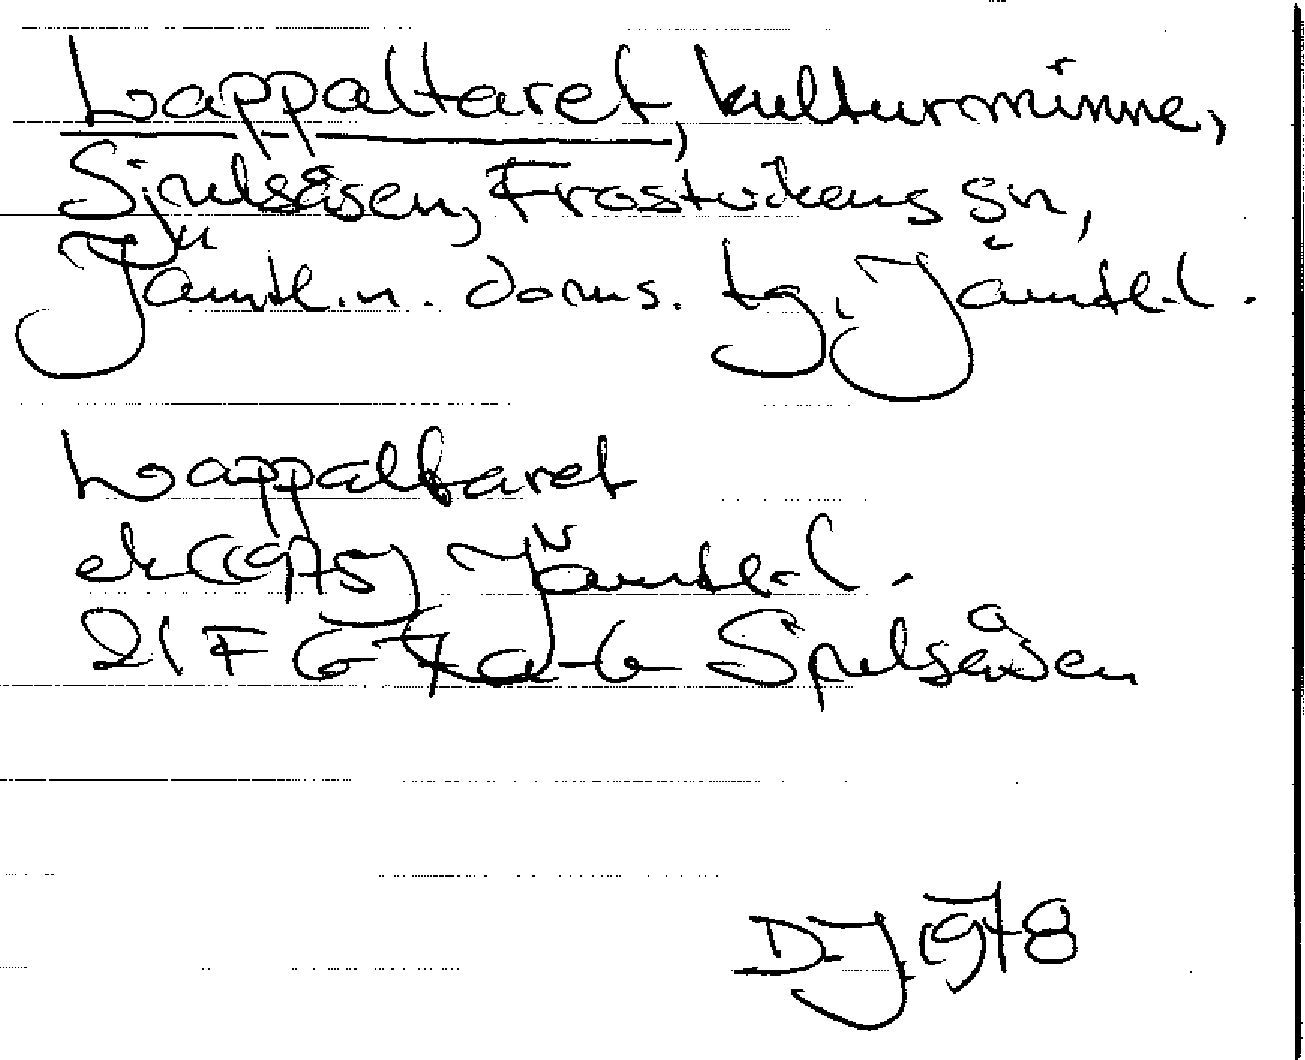 Lappaltaret, kulturminne,
Sjulsåsen, Frostvikens sn,
Jämtl. n. doms. tg, Jämtl. l.
Lappaltaret
ek (1975) Jämtl. l.
21F 6-7a-b Sjulsåsen
D.J. 1978